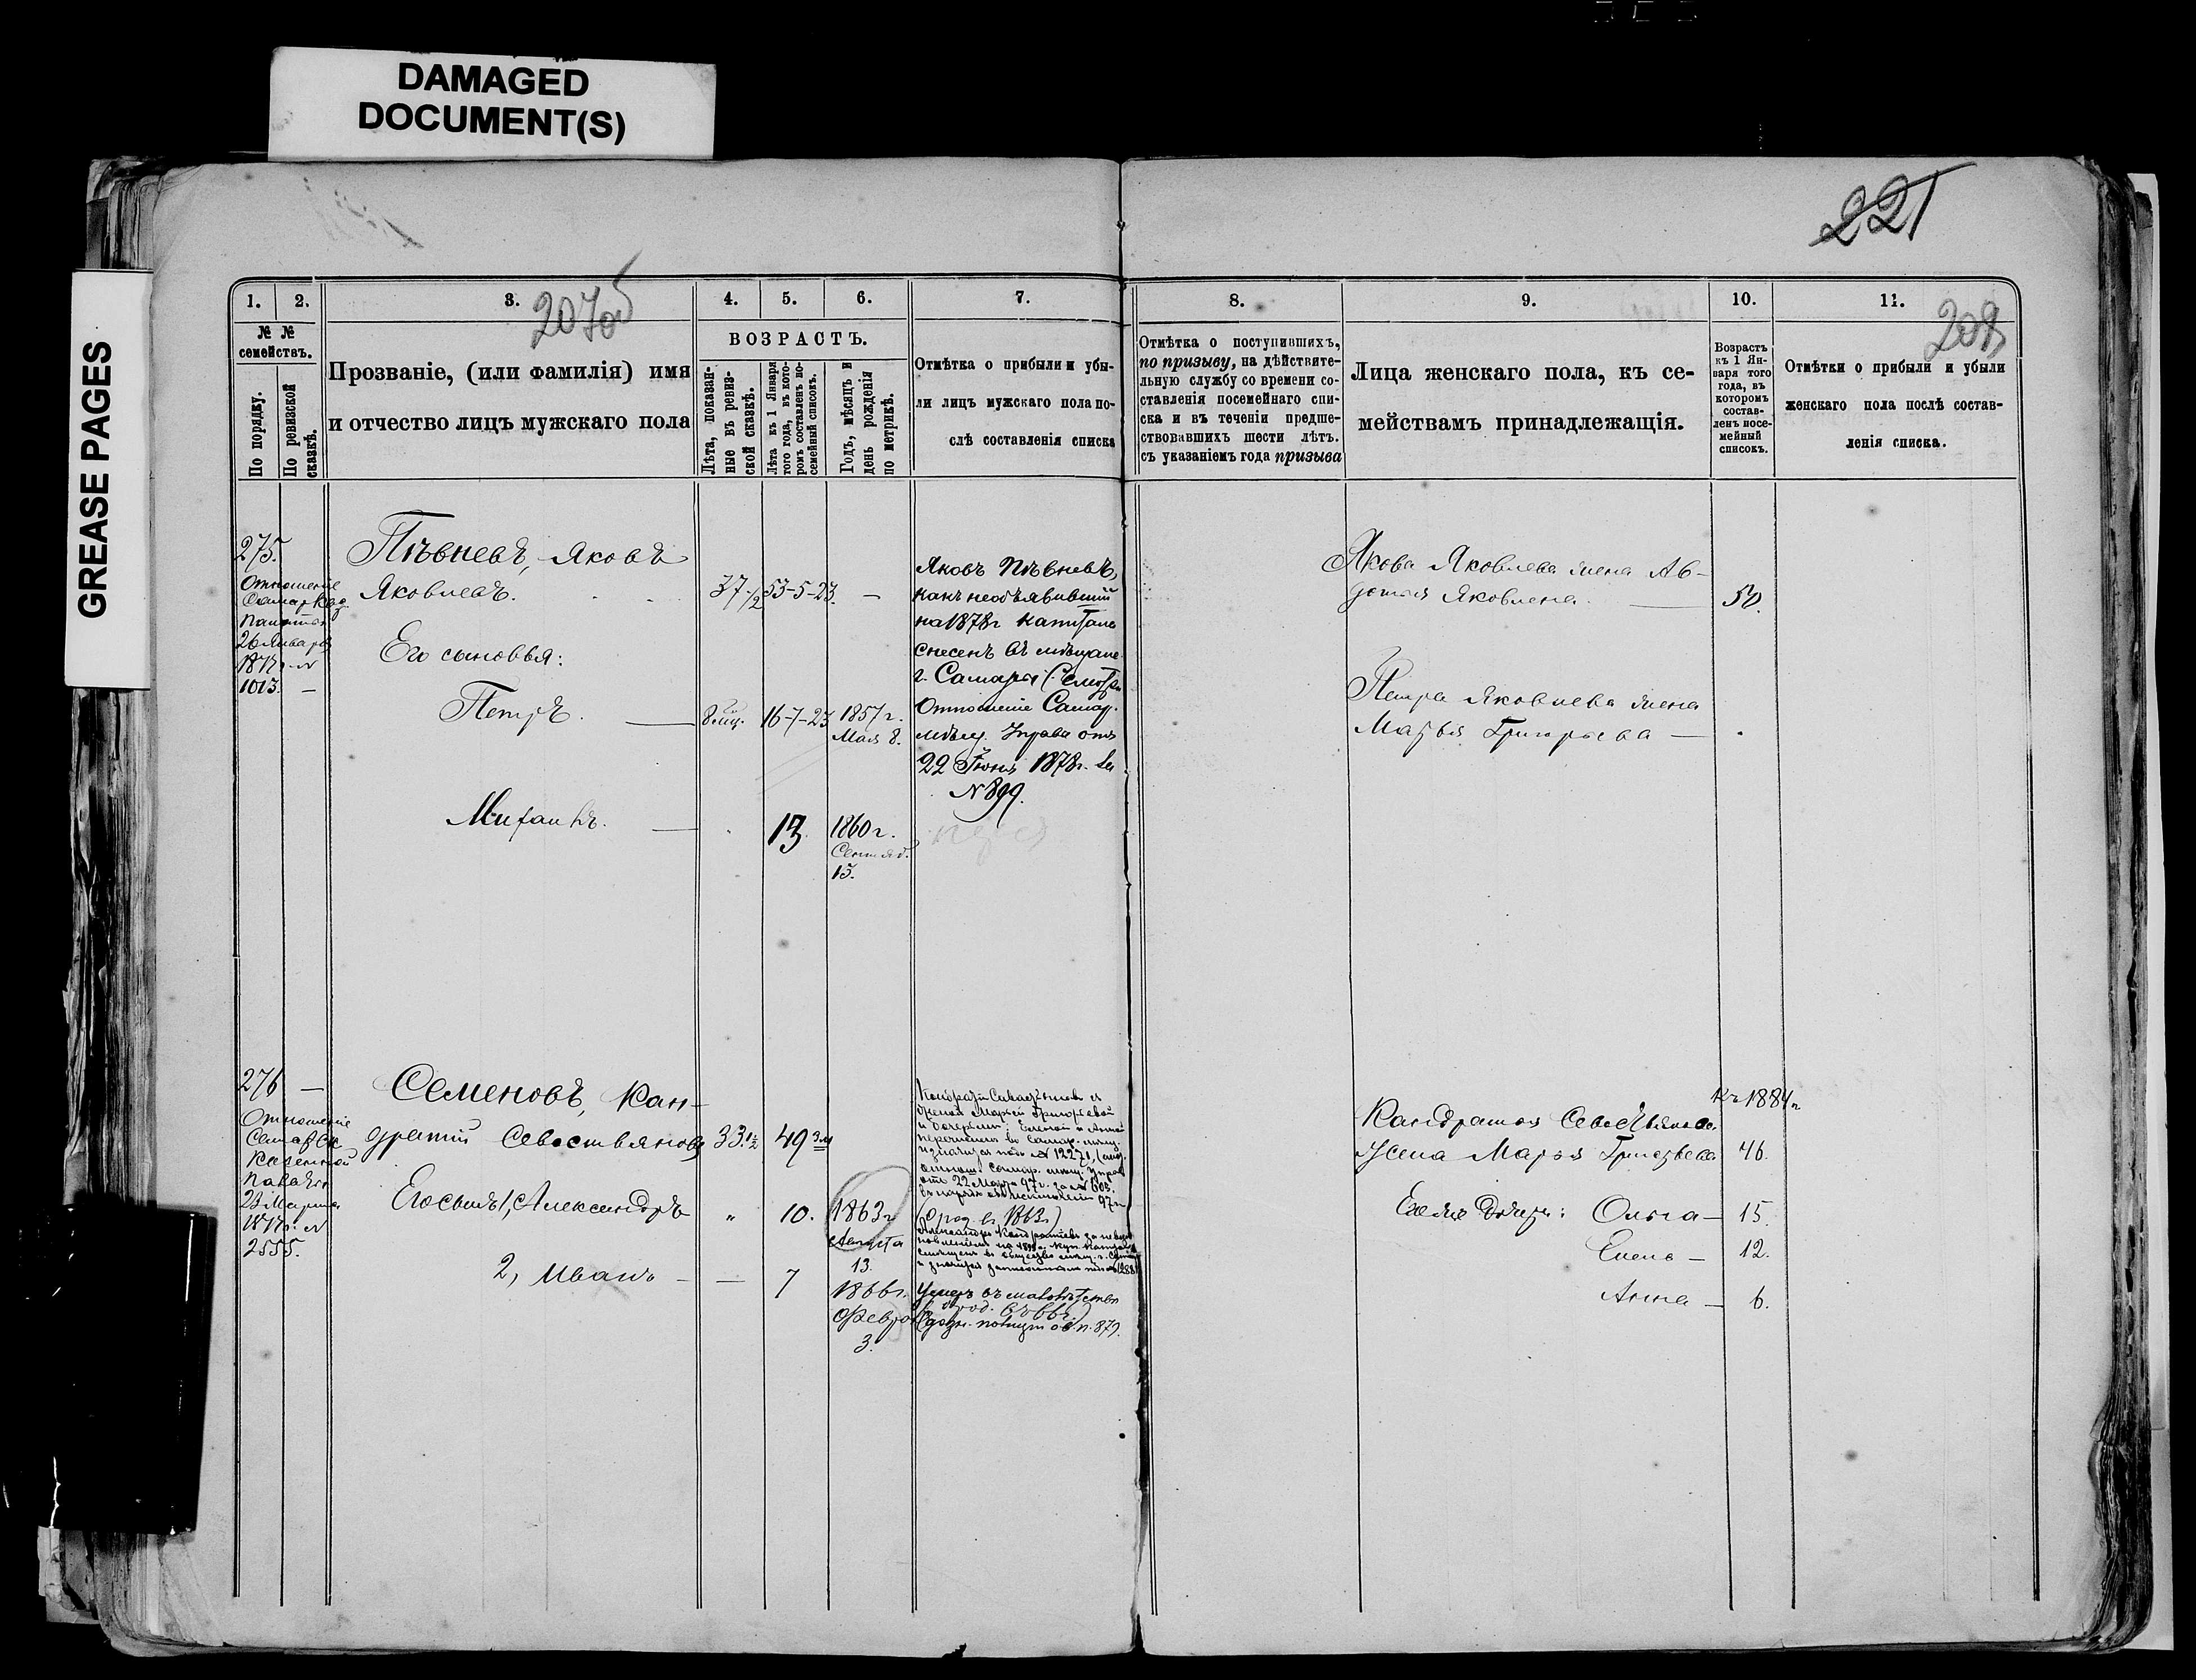 DAMAGED
DOCUMENT(S)
GREASE PAGES
221
207об
208
1.
2.
3.
4.
5.
6.
7.
8.
9.
10.
11.
№ №
семействъ.
По порядку.
По ревизской
сказкѣ.
Прозваніе, (или фамилія) имя
и отчество лицъ мужскаго пола
ВОЗРАСТЪ.
Лѣта, показан-
ные въ ревиз-
ской сказкѣ.
Лѣта къ 1 Января
того года, въ кото-
ромъ составленъ по-
семейный списокъ.
Годъ, мѣсяцъ и
день рожденія
по метрикѣ.
Отмѣтка о прибыли и убы-
ли лицъ мужскаго пола по-
слѣ составленія списка
Отмѣтка о поступившихъ,
по призыву, на дѣйствите-
льную службу со времени со-
ставленія посемейнаго спи-
ска и въ теченіи предше-
ствовавшихъ шести лѣтъ.
съ указаніемъ года призыва
Лица женскаго пола, къ се-
мействамъ принадлежащія.
Возрастъ
къ 1 Ян-
варя того
года, въ
которомъ
состав-
ленъ посе-
мейный
списокъ.
Отмѣтки о прибыли и убыли
женскаго пола послѣ состав-
ленія списка.
275.
Отношеніе
Самар Каз.
Палаты
26 Января
187 г. №
1013. —
Пѣвневъ, Яковъ
Яковлевъ.
37 1/2
53-5-23.
—
Его сыновья:
Петръ. —
8 мц.
16-7-23
1857 г.
Мая 8.
Михаилъ. —
13.
1860 г.
Сентяб.
15.
Яковъ Пѣвневъ,
какъ необъявившій
на 1878 г капитала
снесенъ въ мѣщане
г. Самары (Смотр.
Отношеніе Самар.
мѣщ. Управы отъ
22 Іюня 1878 г. за
№ 899.
Якова Яковлева жена Ав-
дотья Яковлена. —
50.
Петра Яковлева жена
Марья Григорьева —
276 —
Отношеніе
Самарск
Казенной
Палаты
23 Марта
187 г. №
2555.
Семеновъ, Кан-
дратій Севостьяновъ
33 1/2
49
Его сынъ 1, Александръ
"
10.
1863 г
Августа
13.
2, Иванъ —
—
7
1866 г.
Февра
3.
Кондратій Севастьяновъ съ
женой Марьей Григорьевой
и дочерьми: Еленой и Анной
перечислены въ Самар. мѣщ.
и значатся подъ № 12271,
отнош. Самар. мѣщ. Управ
отъ 22 Марта 97 г. за № 603.
97 г.
(О род въ 1863 г)
Александръ Кондратьевъ за невозоб
новленіемъ на г. куп. капитала
въ общество мѣщ. г. Самары
Умеръ въ малолѣтствѣ
(О род. въ 66 г.)
Къ 1884 г
Кандратья Севостьянова
Жена Марья Григорьева
46.
Ея же Дочери: Ольга —
15.
Елена —
12.
Анна —
6.